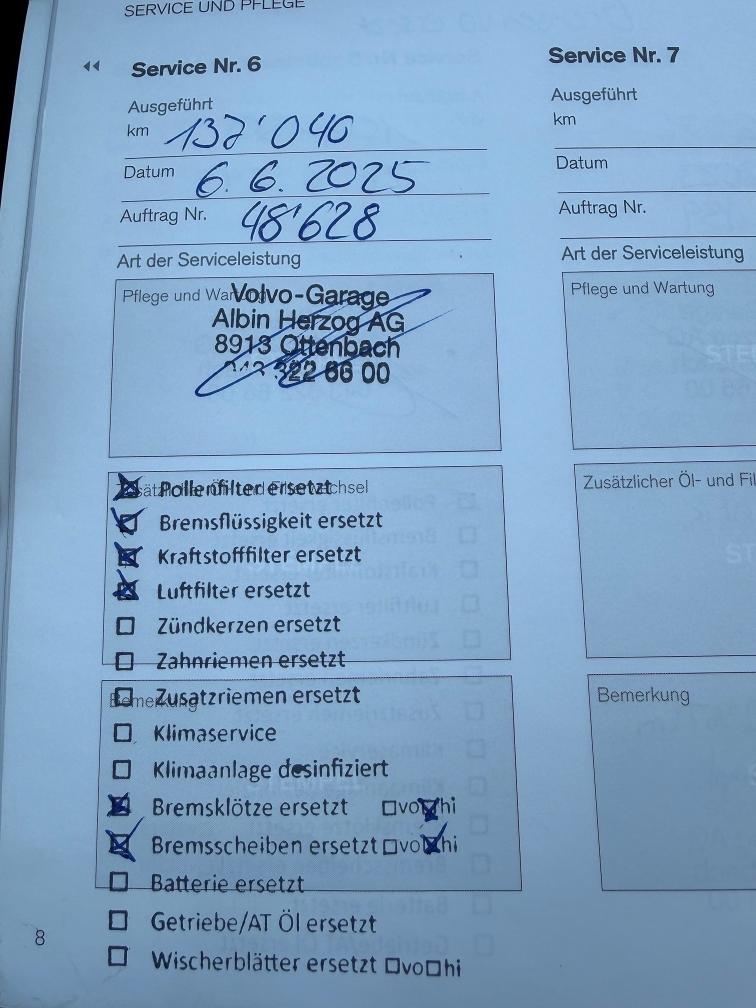 SERVICE UND PFLEGE
Service Nr. 6
Ausgeführt
km 137'040
Datum 6. 6. 2025
Auftrag Nr. 48'628
Art der Serviceleistung
Pflege und Wartung
Volvo-Garage
Albin Herzog AG
8913 Ottenbach
322 66 00
Pollenfilter ersetzt
Bremsflüssigkeit ersetzt
Kraftstofffilter ersetzt
Luftfilter ersetzt
Zündkerzen ersetzt
Zahnriemen ersetzt
Bemerkung
Zusatzriemen ersetzt
Klimaservice
Klimaanlage desinfiziert
Bremsklötze ersetzt vo hi
Bremsscheiben ersetzt vo hi
Batterie ersetzt
Getriebe/AT Öl ersetzt
Wischerblätter ersetzt vo hi
8
Service Nr. 7
Ausgeführt
km
Datum
Auftrag Nr.
Art der Serviceleistung
Pflege und Wartung
Zusätzlicher Öl- und Fil
Bemerkung